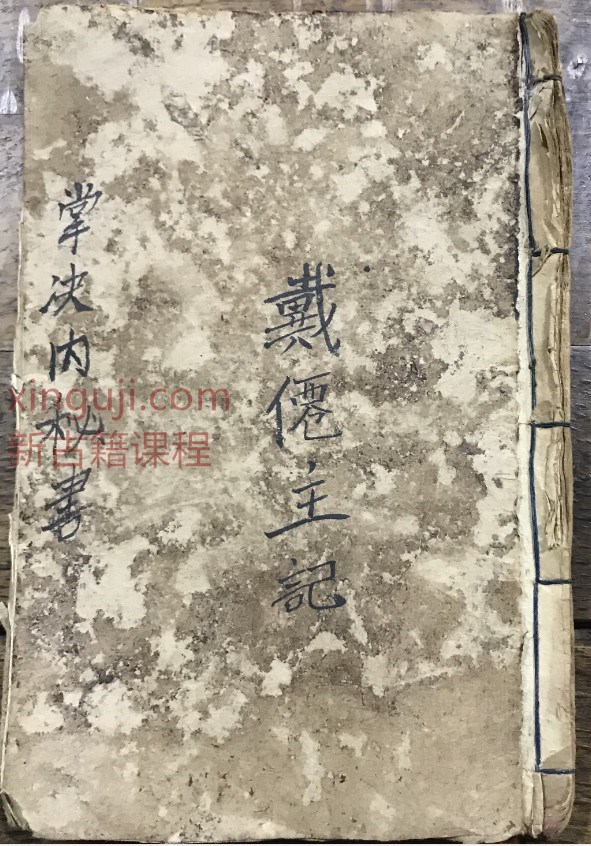 戴僊主記
掌決内秘書
xinguji.com
新古籍课程